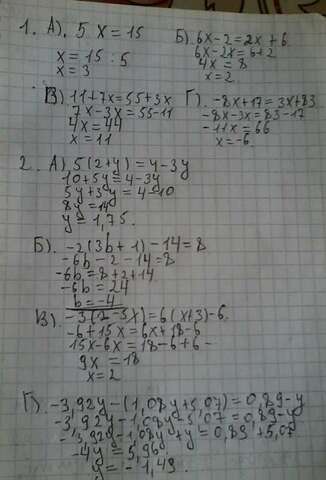 1. А). 5 x = 15
x = 15 : 5
x = 3
Б). 6x - 2 = 2x + 6
6x - 2x = 6 + 2
4x = 8
x = 2
В) 11 + 7x = 55 + 3x
7x - 3x = 55 - 11
4x = 44
x = 11
Г). -8x + 17 = 3x + 83
-8x - 3x = 83 - 17
-11x = 66
x = -6
2. А) 5(2+y) = 4 - 3y
10 + 5y = 4 - 3y
5y + 3y = 4 - 10
8y = 14
y = 1,75.
Б). -2(3b + 1) - 14 = 8
-6b - 2 - 14 = 8
-6b = 8 + 2 + 14
-6b = 24
b = -4
В). -3(2 - 5x) = 6(x + 3) - 6
-6 + 15x = 6x + 18 - 6
15x - 6x = 18 - 6 + 6
9x = 18
x = 2
Г). -3,92y - (1,08y + 5,07) = 0,89 - y
-3,92y - 1,08y - 5,07 = 0,89 - y
-3,92y - 1,08y + y = 0,89 + 5,07
-4y = 5,96
y = -1,49.